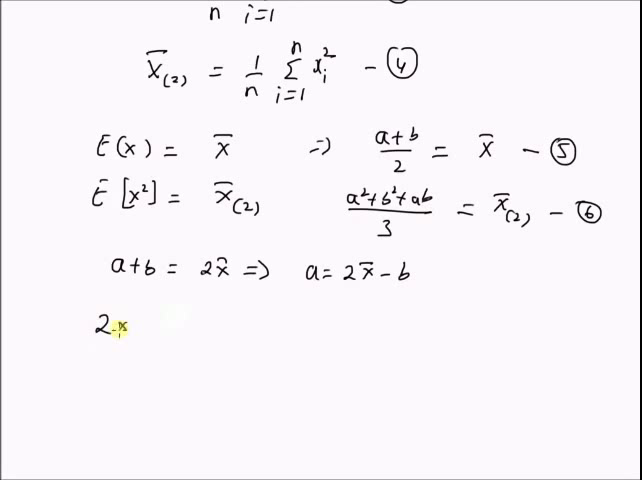 n i=1
x̄₍₂₎ = 1/n Σⁿᵢ₌₁ xᵢ² - ④
E(x) = x̄ ⇒ (a+b)/2 = x̄ - ⑤
E[x²] = x̄₍₂₎ (a²+b²+ab)/3 = x̄₍₂₎ - ⑥
a+b = 2x̄ ⇒ a = 2x̄ - b
2